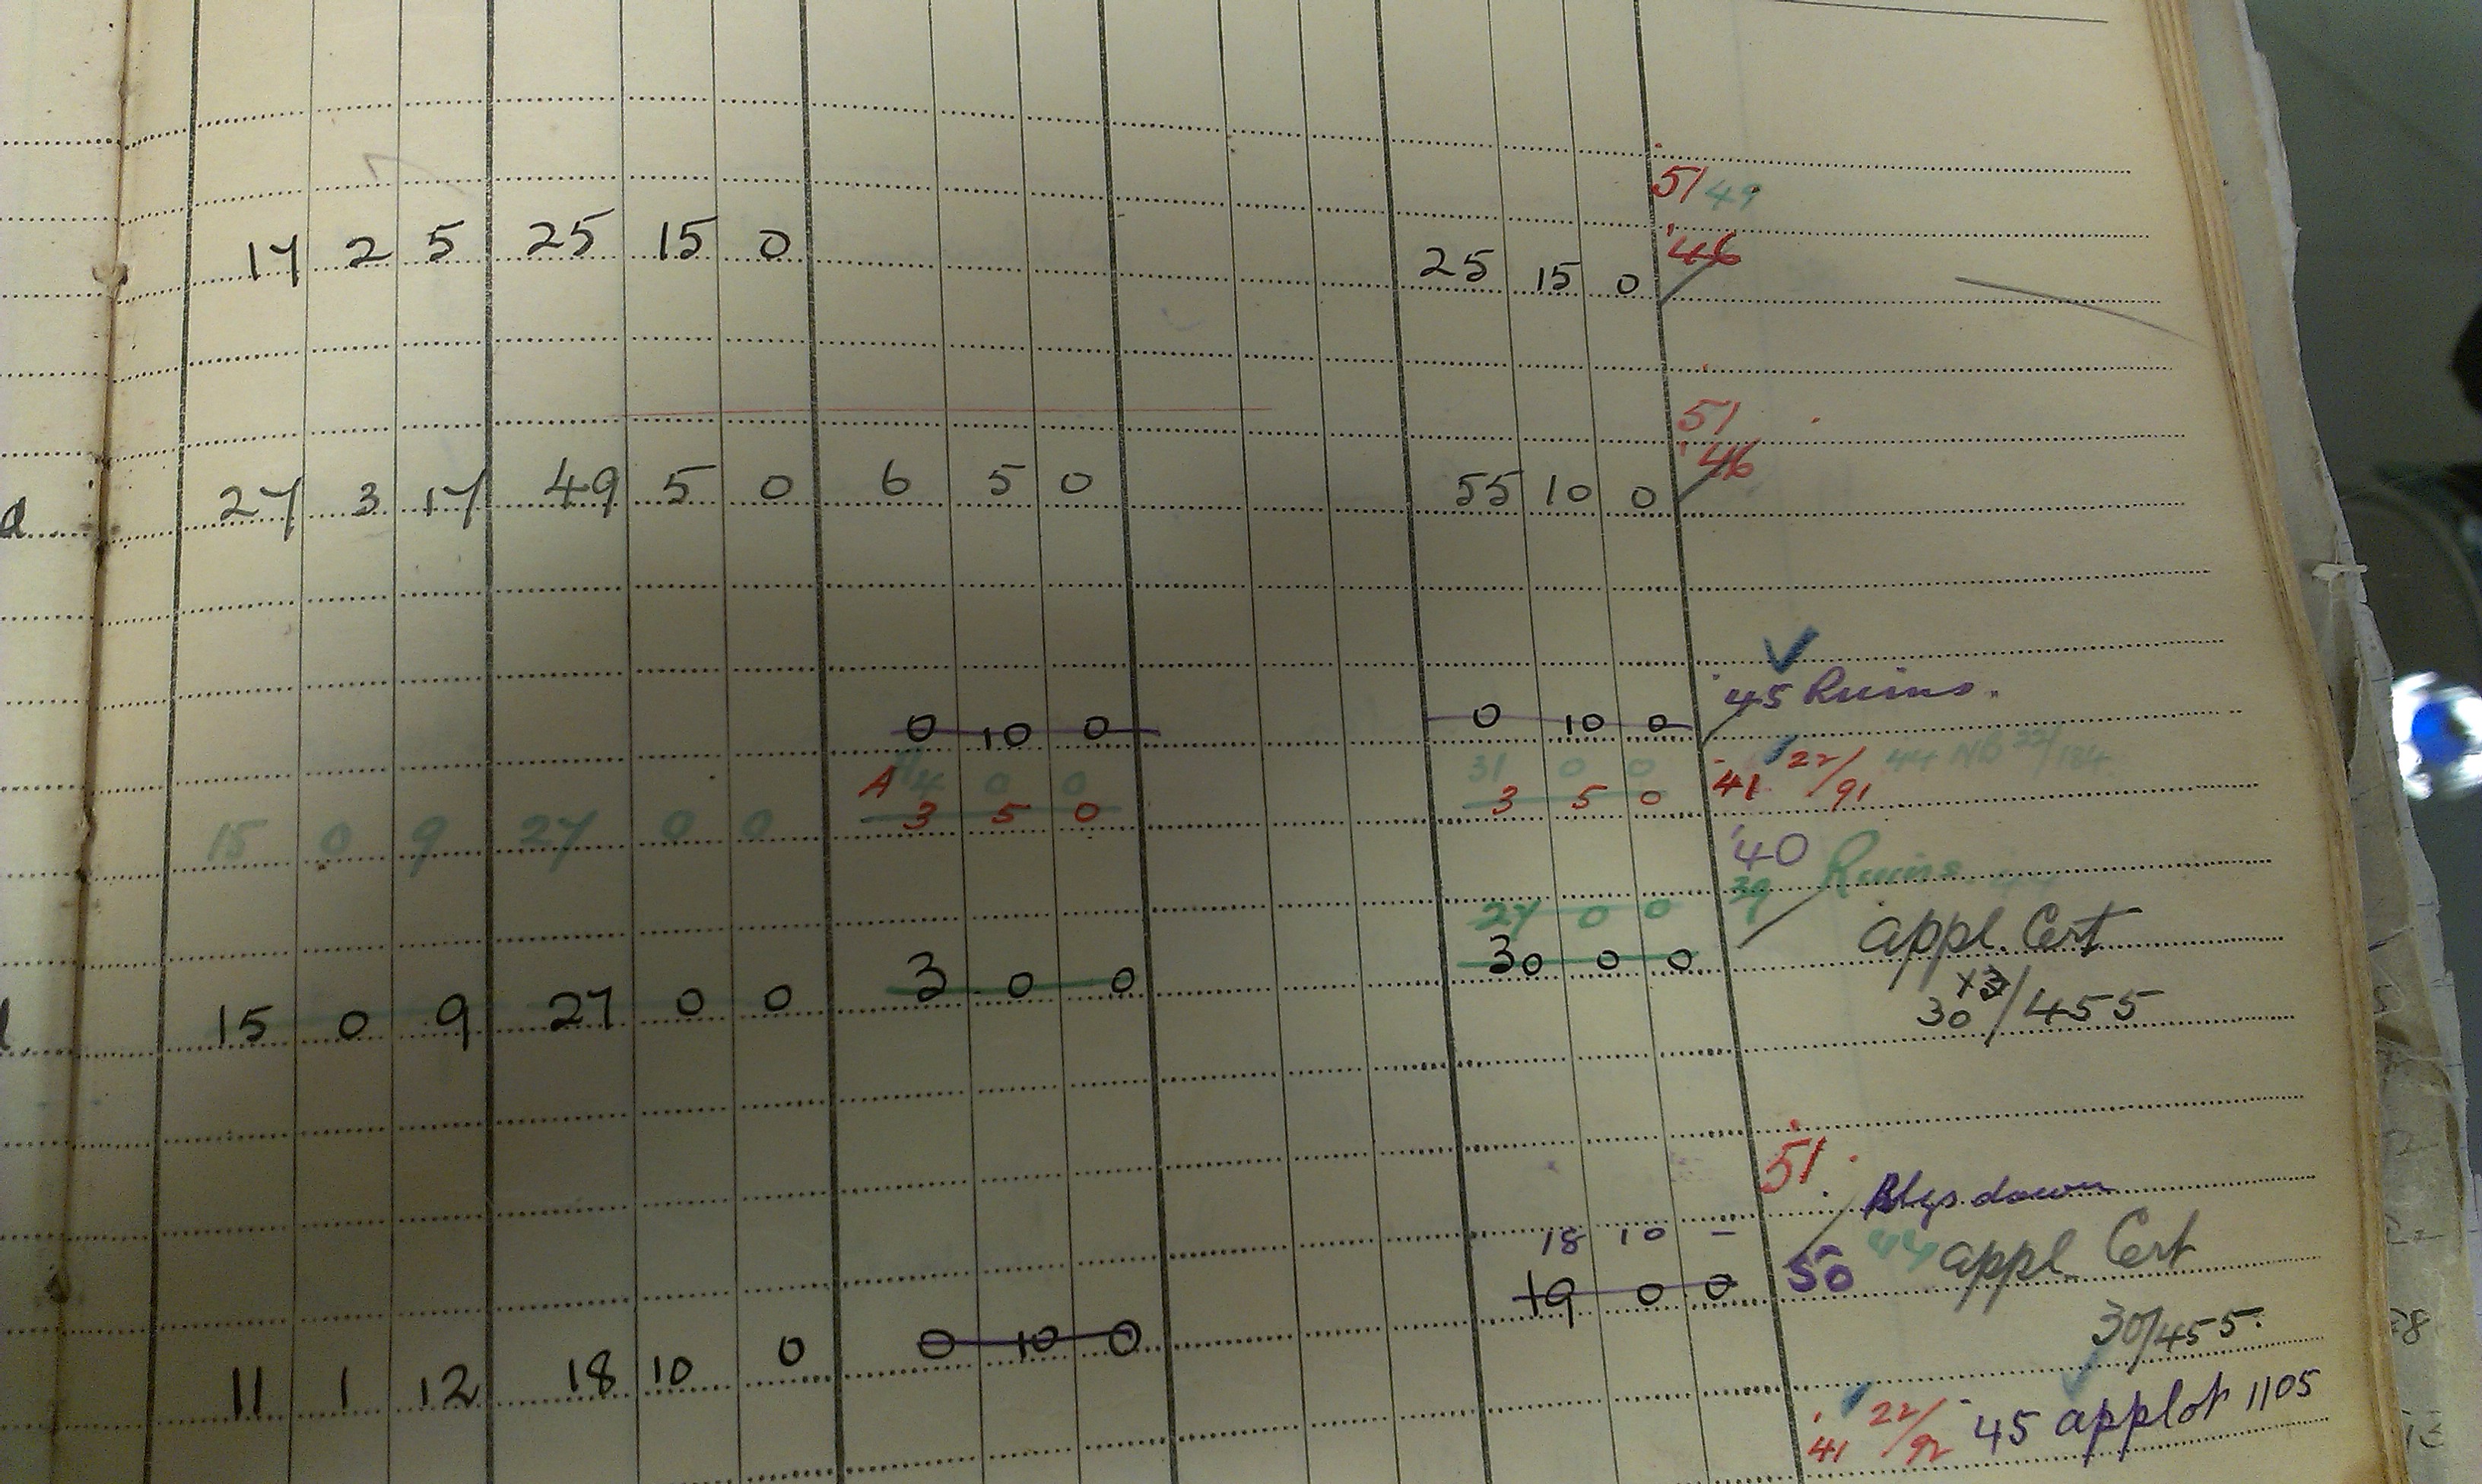 51 49
17 2 5 25 15 0 25 15 0 '46
51
27 3 17 49 5 0 6 5 0 55 10 0 '46
0 10 0 0 10 0 '45 Ruins.
4 0 0 31 0 0 '41 22/91 44 NB 22/184
A 3 5 0 3 5 0
15 0 9 27 0 0 '40
39 Ruins. 44
27 0 0
15 0 9 27 0 0 3 0 0 30 0 0 appl. Cert
30/455
51
Blgs down
18 10 – 44 appl. Cert
19 0 0 50
11 1 12 18 10 0 0 10 0 30/455.
'41 22/92 '45 applot 1105